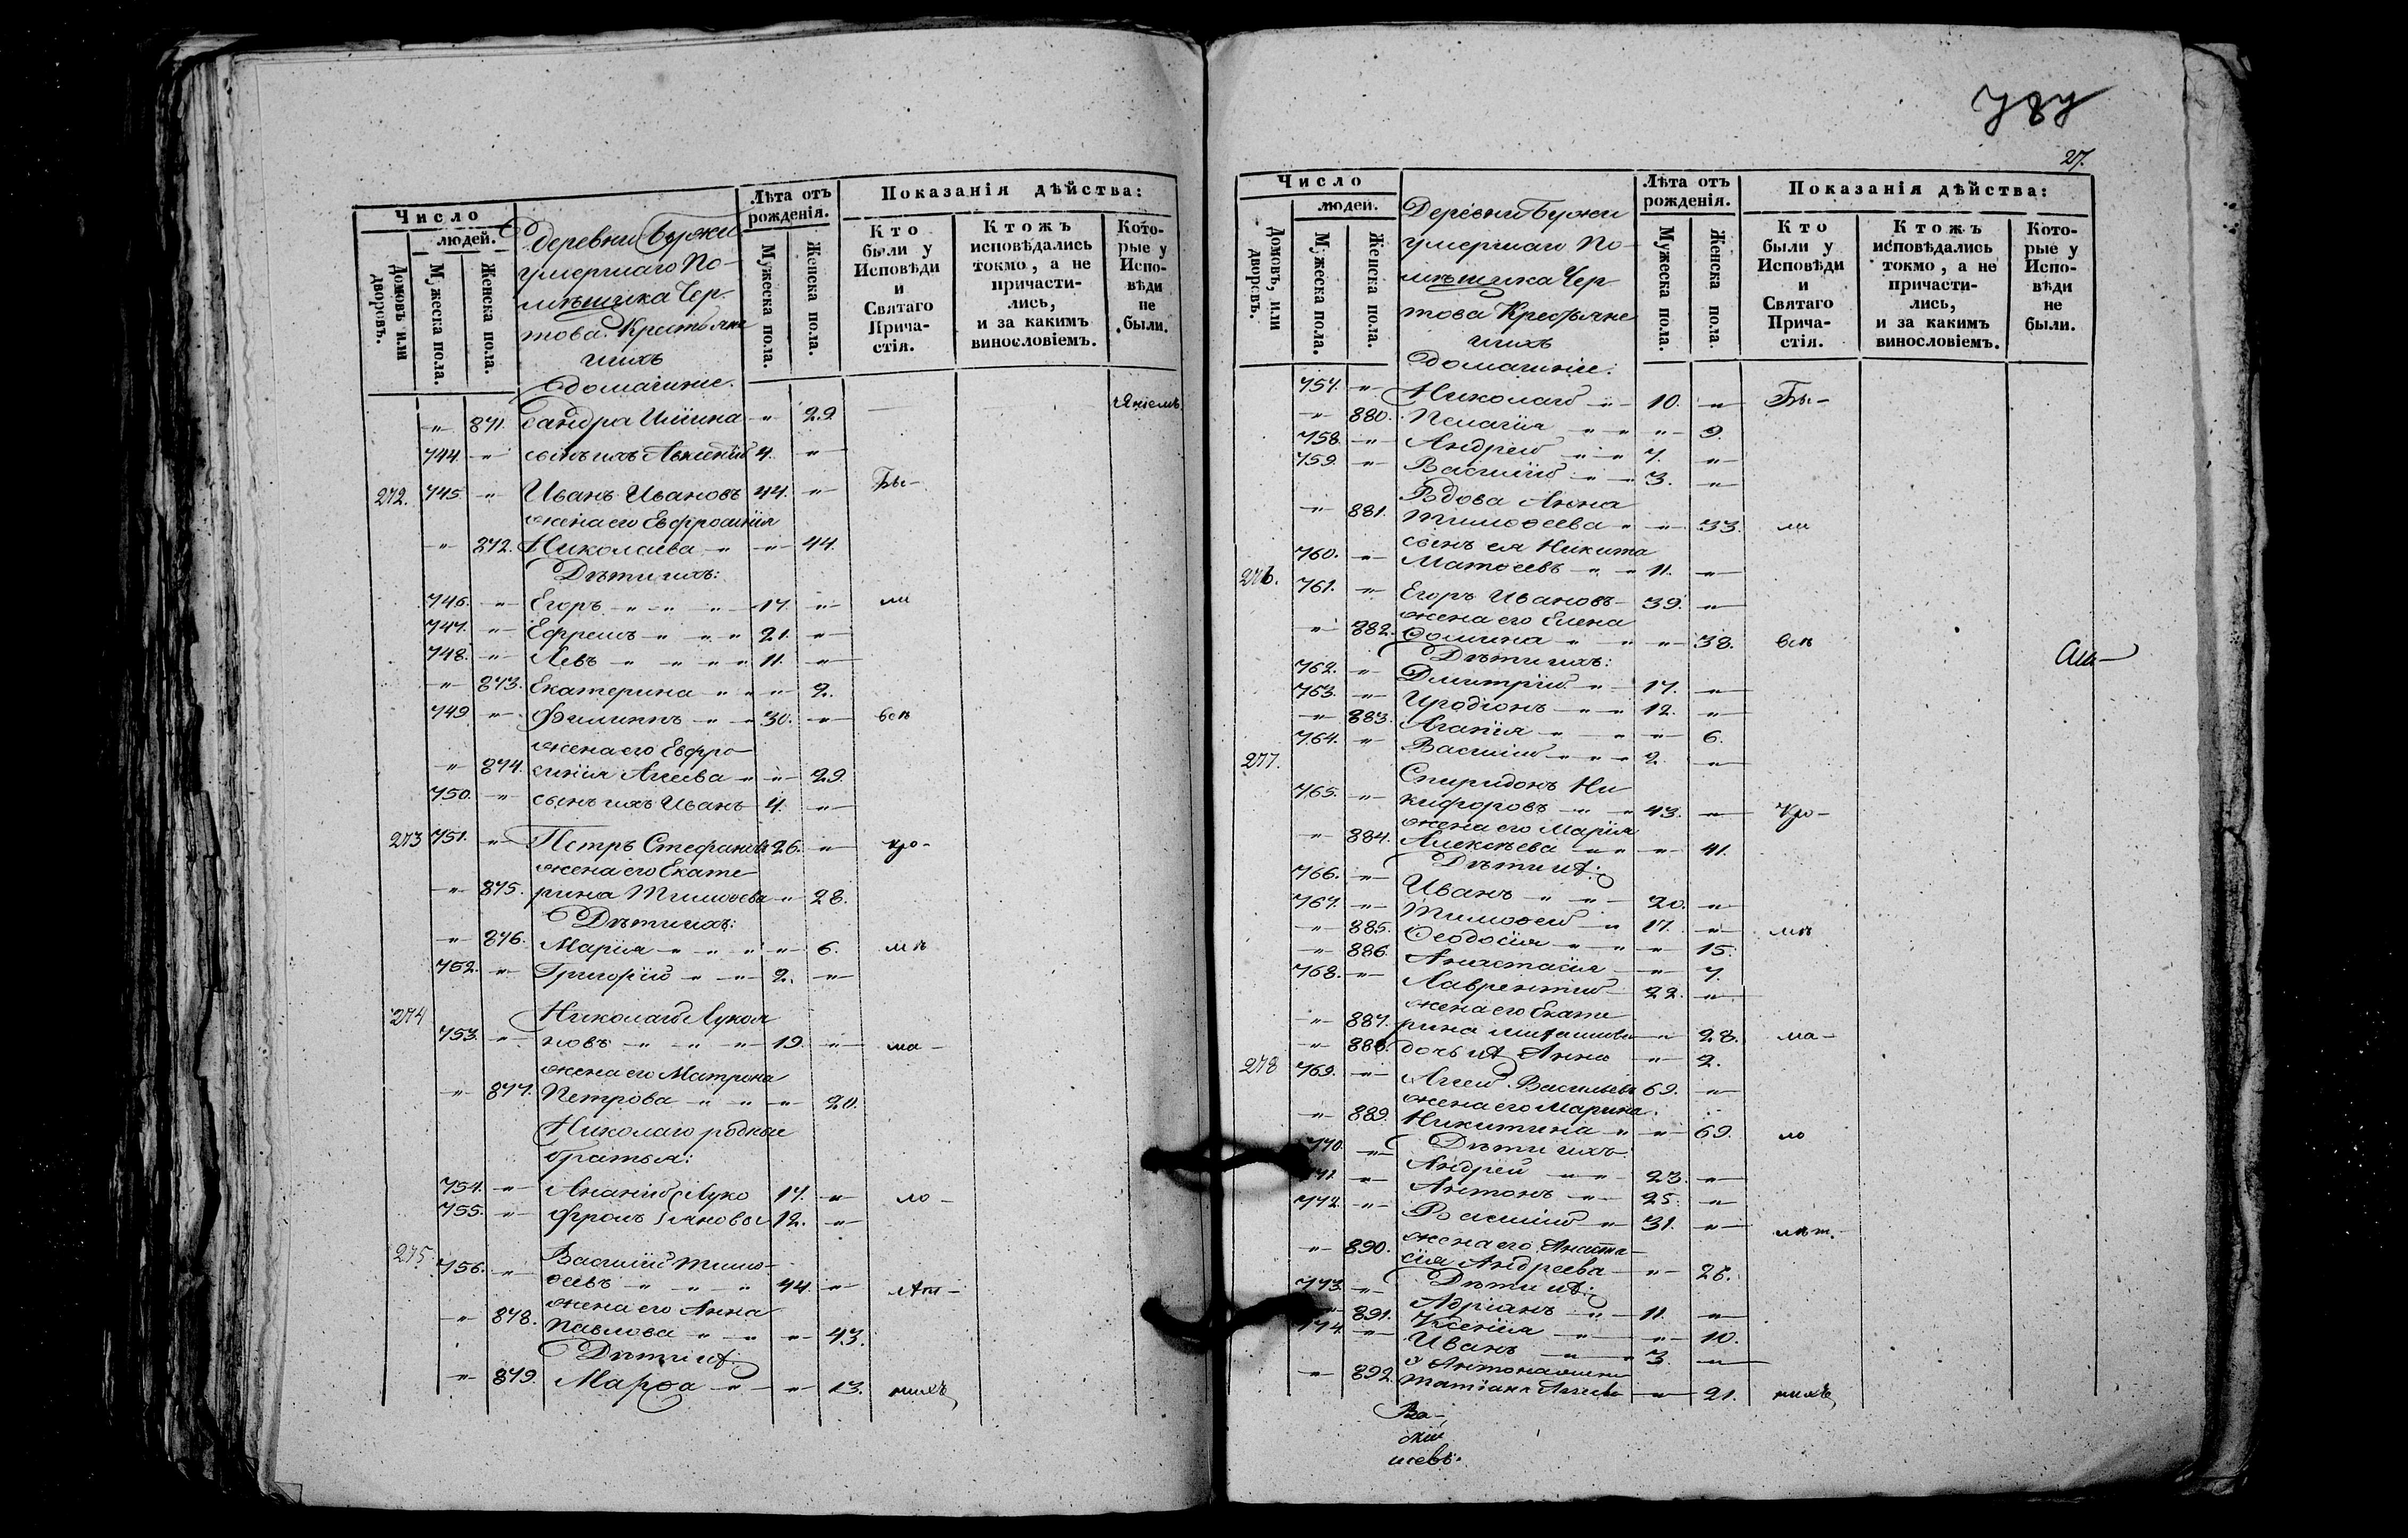 787
27.
Число
людей.
Домовъ или дворовъ.
Мужеска пола.
Женска пола.
Деревни Бужи
умершаго По-
мѣщика Чер-
това Крестьяне
ихъ
домашніе.
Лѣта отъ рожденія.
Мужеска пола.
Женска пола.
Показанія дѣйства:
Кто были у Исповѣди и Святаго Причастія.
Ктожъ исповѣдались токмо, а не причастились, и за какимъ винословіемъ.
Которые у Исповѣди не были.
" 871. " 29
744. " сынъ ихъ 4. "
272. 745. " Иванъ Ивановъ 44. " Бы-
жена его Евфросинія
" 872. Николаева " " 44.
Дѣти ихъ:
746. " Егоръ " " " 17. " ли
747. " Ефремъ " " " 21. "
748. " Левъ " " " " 11. "
" 873. Екатерина " " " 2.
749. " Филиппъ " " 30. " всѣ
жена его Евфро-
" 874. синія Агеева " " 29.
750. " сынъ ихъ Иванъ 4. "
273 751. " Петръ Стефановъ 26. " кро-
жена его Екате-
" 875. рина Тимоѳеева " 28.
Дѣти ихъ:
" 876. Марія " " " " 6. мѣ
752. " Григорій " " 2. "
274 Николай Лукоя
753. " новъ " " " 19. " ма-
жена его Матрона
" 877. Петрова " " " 20.
Николаю родные
братья:
754. " Ананій Луко 17. " ло-
755. " Фролъ яновы 12. "
275. Василій Тимо-
756. " ѳеевъ " " " 44. " лѣт-
жена его Анна
" 878. Павлова " " " 43.
Дѣти ихъ
" 879. Марѳа " " 13. нихъ
Число
людей.
Домовъ, или дворовъ.
Мужеска пола.
Женска пола.
Деревни Бужи
умершаго По-
мѣщика Чер-
това Крестьяне
ихъ
домашніе.
Лѣта отъ рожденія.
Мужеска пола.
Женска пола.
Показанія дѣйства:
Кто были у Исповѣди и Святаго Причастія.
Ктожъ исповѣдались токмо, а не причастились, и за какимъ винословіемъ.
Которые у Исповѣди не были.
757. " Николай " 10. " Бы-
" 880. Пелагія " " " 9.
758. " Андрей " " 7. "
759. " Василій " " 3. "
Вдова Анна
" 881. Тимоѳеева " " 33. ли
сынъ ея Никита
760. " Матѳеевъ " " 11. "
276. 761. " Егоръ Ивановъ 39. "
жена его Елена
" 882. Ѳомина " " " 38. всѣ
Дѣти ихъ:
762. " Дмитрій " 17. "
763. " Иродіонъ " " 12. "
" 883. Агапія " " " 6.
764. " Василій " " " 2. "
277. Спиридонъ Ни-
765. " кифоровъ " " 43. " кро-
жена его Марія
" 884. Алексѣева " " " 41.
Дѣти ихъ:
766. " Иванъ " " 20. "
767. " Тимоѳей " 17. " мѣ
" 885. Ѳеодосія " " " 15.
" 886. Анастасія " 7.
768. " Лаврентій 22. "
жена его Екате-
" 887. рина " 28. ма-
" 888. дочь ихъ Анна " 2.
278 769. " Агей Васильевъ 69. "
жена его Марина
" 889. Никитина " " 69. ло
Дѣти ихъ
770. " Андрей " " 23. "
771. " Антонъ " 25. "
772. " Василій " 31. " лѣт.
жена его Анаста-
" 890. сія Андреева " 26.
Дѣти ихъ:
773. " Адріанъ " 11. "
" 891. Ксенія " " 10.
774. " Иванъ " " 3. "
" 892. Татіана " 21. нихъ